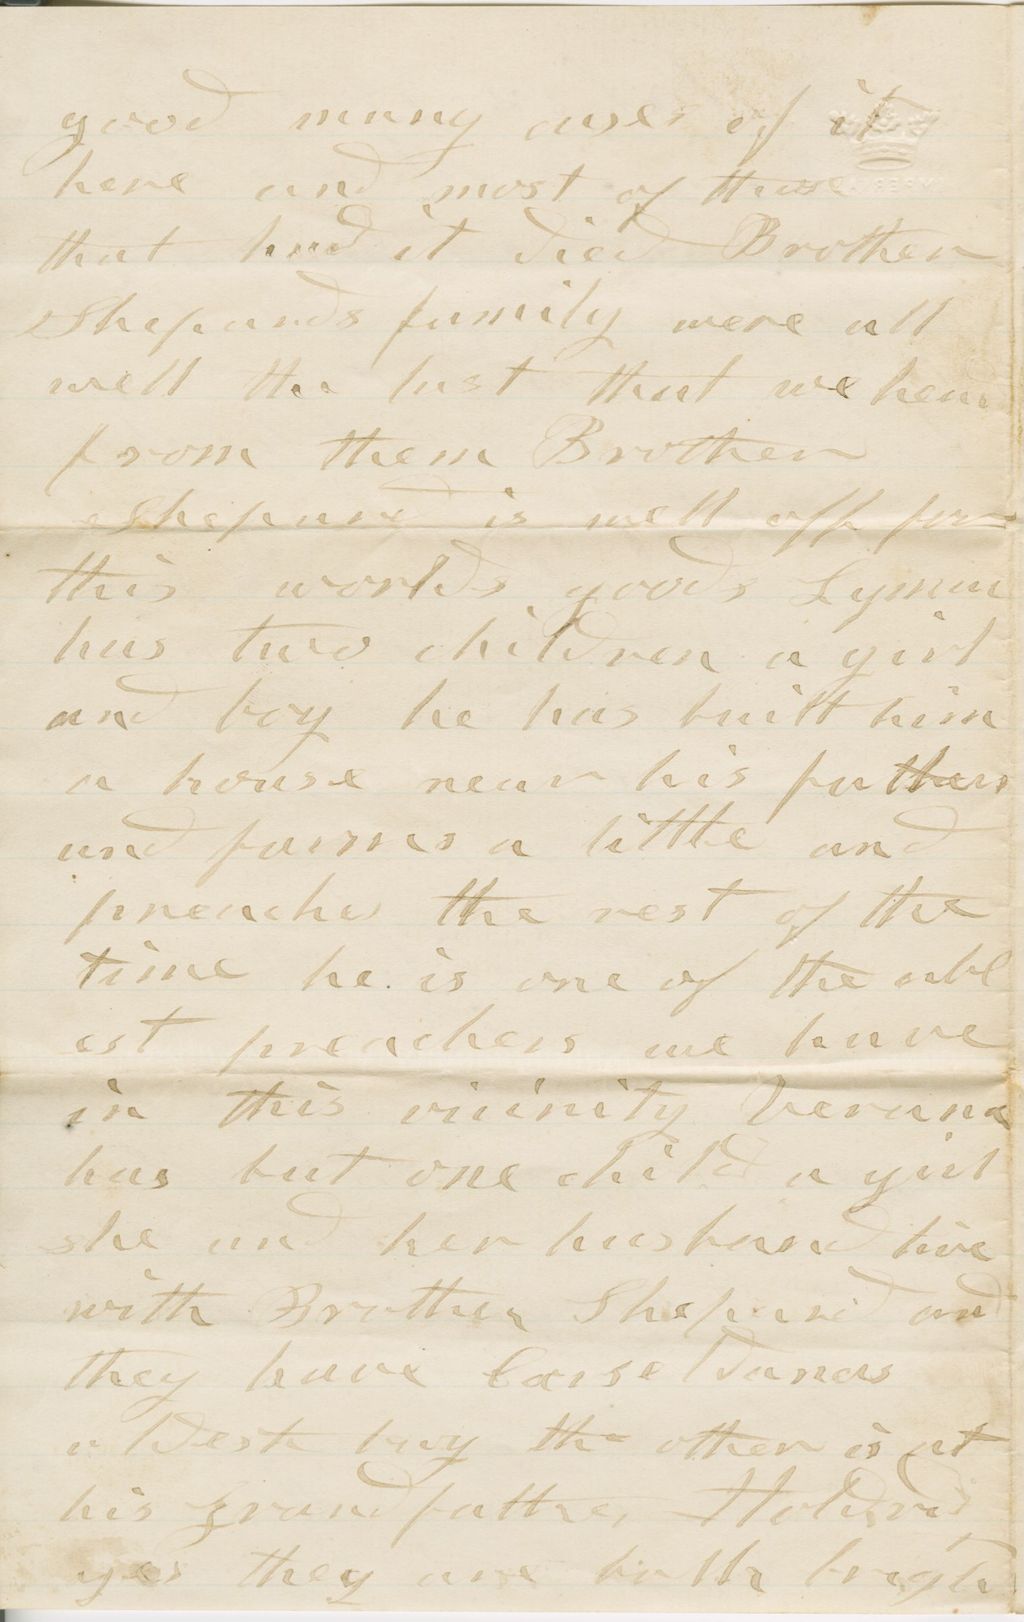 good many cases of it
here and most of those
that had it died Brother
Shepards family were all
well the last that we hear
from them Brother
Shepard is well off for
this worlds goods Lyman
has two children a girl
and boy he has built him
a house near his fathers
and farms a little and
preaches the rest of the
time he is one of the abl
est preachers we have
in this vicinity
has but one child a girl
she and her husband live
with Brother Shepard and
they have
oldest boy the other is at
his grandfather
yes they are both